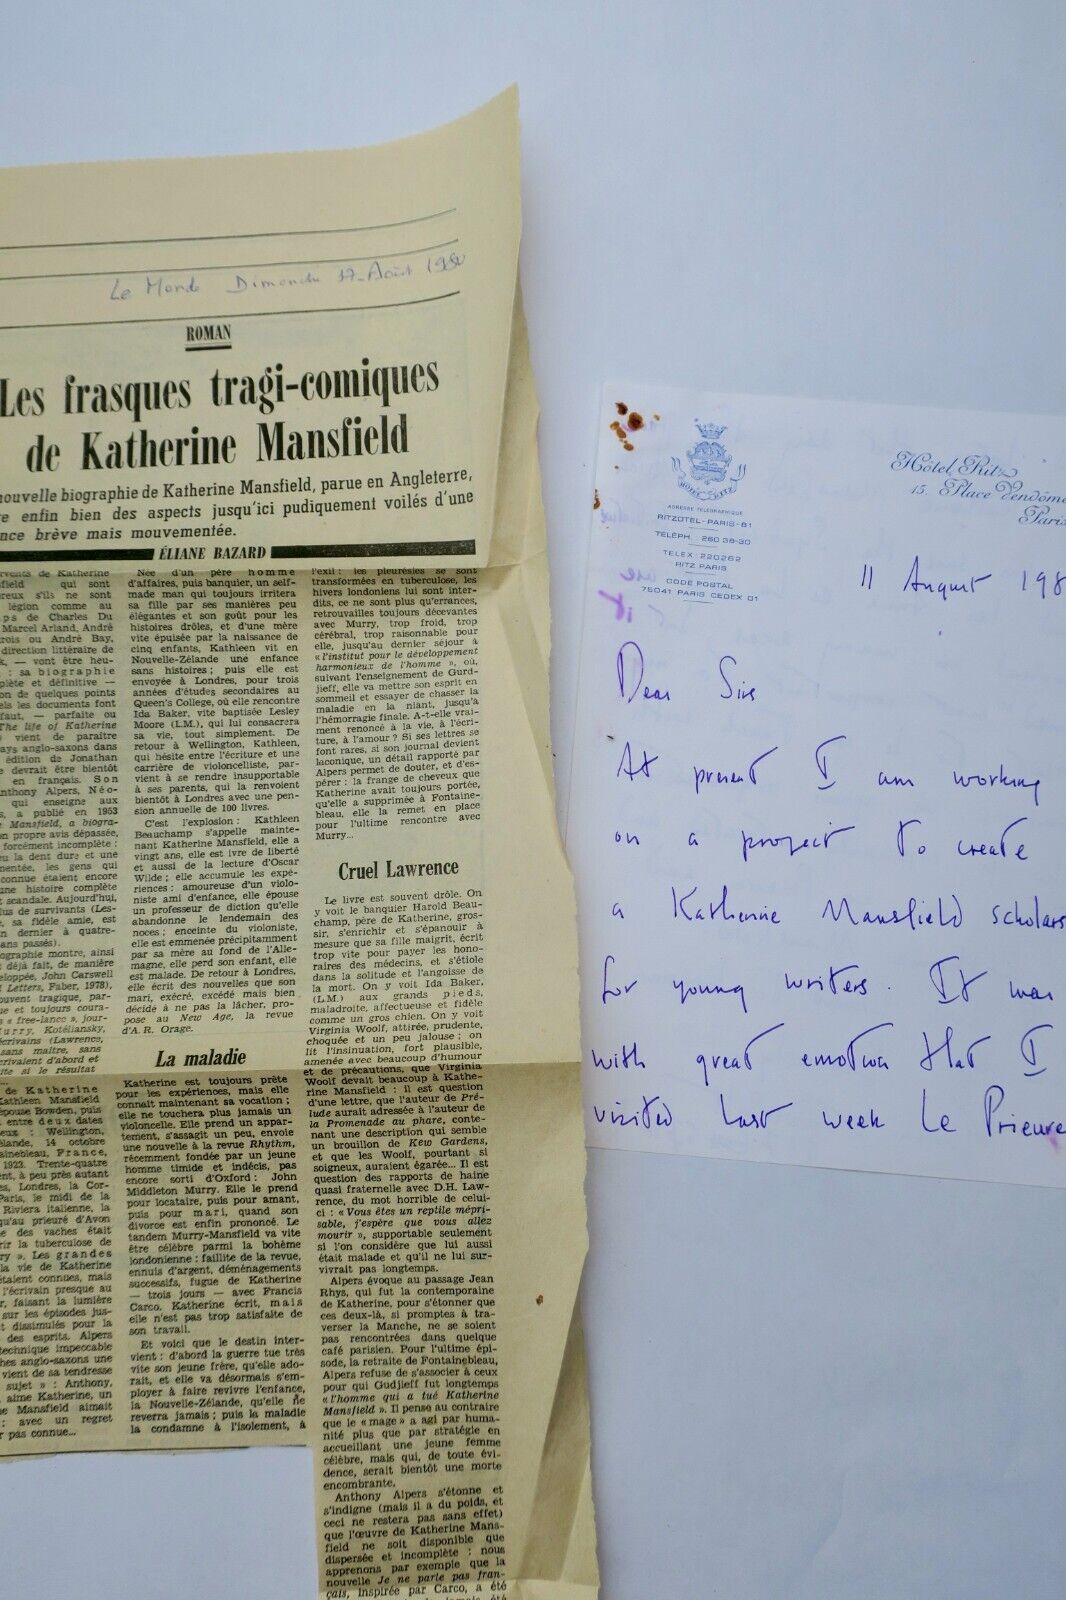 Le Monde Dimanche 17-Août 1980
ROMAN
Les frasques tragi-comiques
de Katherine Mansfield
nouvelle biographie de Katherine Mansfield, parue en Angleterre,
e enfin bien des aspects jusqu'ici pudiquement voilés d'une
nce brève mais mouvementée.
ÉLIANE BAZARD
rvents de Katherine
sfield qui sont
reux s'ils ne sont
légion comme au
ps de Charles Du
Marcel Arland, André
rois ou André Bay,
direction littéraire de
k, — vont être heu-
: sa biographie
plète et définitive —
on de quelques points
els les documents font
faut, — parfaite ou
The life of Katherine
vient de paraître
ays anglo-saxons dans
édition de Jonathan
e devrait être bientôt
en français. Son
nthony Alpers, Néo-
qui enseigne aux
s, a publié en 1953
e Mansfield, a biogra-
on propre avis dépassée,
forcément incomplète :
u la dent dure et une
mentée, les gens qui
connue étaient encore
une histoire complète
t scandale. Aujourd'hui,
plus de survivants (Les-
sa fidèle amie, est
n dernier à quatre-
ans passés).
ographie montre, ainsi
t déjà fait, de manière
eloppée, John Carswell
d Letters, Faber, 1978),
ouvent tragique, par-
ue et toujours coura-
s « free-lance », jour-
urry, Kotéliansky,
écrivains (Lawrence,
sans maître, sans
crivaient d'abord et
ite si le résultat
...
de Katherine
Kathleen Mansfield
épouse Bowden, puis
entre deux dates
eux : Wellington,
lande, 14 octobre
ainebleau, France,
1923. Trente-quatre
ent, à peu près autant
es, Londres, la Cor-
Paris, le midi de la
Riviera italienne, la
qu'au prieuré d'Avon
e des vaches était
rir la tuberculose de
ry ». Les grandes
la vie de Katherine
étaient connues, mais
l'écrivain presque au
r, faisant la lumière
sur les épisodes jus-
t dissimulés pour la
des esprits. Alpers
technique impeccable
hes anglo-saxons une
vient de sa tendresse
sujet » : Anthony,
, aime Katherine, un
ne Mansfield aimait
; avec un regret
r pas connue...
Née d'un père homme
d'affaires, puis banquier, un self-
made man qui toujours irritera
sa fille par ses manières peu
élégantes et son goût pour les
histoires drôles, et d'une mère
vite épuisée par la naissance de
cinq enfants, Kathleen vit en
Nouvelle-Zélande une enfance
sans histoires ; puis elle est
envoyée à Londres, pour trois
années d'études secondaires au
Queen's College, où elle rencontre
Ida Baker, vite baptisée Lesley
Moore (L.M.), qui lui consacrera
sa vie, tout simplement. De
retour à Wellington, Kathleen,
qui hésite entre l'écriture et une
carrière de violoncelliste, par-
vient à se rendre insupportable
à ses parents, qui la renvoient
bientôt à Londres avec une pen-
sion annuelle de 100 livres.
C'est l'explosion : Kathleen
Beauchamp s'appelle mainte-
nant Katherine Mansfield, elle a
vingt ans, elle est ivre de liberté
et aussi de la lecture d'Oscar
Wilde ; elle accumule les expé-
riences : amoureuse d'un violo-
niste ami d'enfance, elle épouse
un professeur de diction qu'elle
abandonne le lendemain des
noces ; enceinte du violoniste,
elle est emmenée précipitamment
par sa mère au fond de l'Alle-
magne, elle perd son enfant, elle
est malade. De retour à Londres,
elle écrit des nouvelles que son
mari, exécré, excédé mais bien
décidé à ne pas la lâcher, pro-
pose au New Age, la revue
d'A.R. Orage.
La maladie
Katherine est toujours prête
pour les expériences, mais elle
connaît maintenant sa vocation ;
elle ne touchera plus jamais un
violoncelle. Elle prend un appar-
tement, s'assagit un peu, envoie
une nouvelle à la revue Rhythm,
récemment fondée par un jeune
homme timide et indécis, pas
encore sorti d'Oxford : John
Middleton Murry. Elle le prend
pour locataire, puis pour amant,
puis pour mari, quand son
divorce est enfin prononcé. Le
tandem Murry-Mansfield va vite
être célèbre parmi la bohème
londonienne : faillite de la revue,
ennuis d'argent, déménagements
successifs, fugue de Katherine
— trois jours — avec Francis
Carco. Katherine écrit, mais
elle n'est pas trop satisfaite de
son travail.
Et voici que le destin inter-
vient : d'abord la guerre tue très
vite son jeune frère, qu'elle ado-
rait, et elle va désormais s'em-
ployer à faire revivre l'enfance,
la Nouvelle-Zélande, qu'elle ne
reverra jamais ; puis la maladie
la condamne à l'isolement, à
l'exil : les pleurésies se sont
transformées en tuberculose, les
hivers londoniens lui sont inter-
dits, ce ne sont plus qu'errances,
retrouvailles toujours décevantes
avec Murry, trop froid, trop
cérébral, trop raisonnable pour
elle, jusqu'au dernier séjour à
« l'institut pour le développement
harmonieux de l'homme », où,
suivant l'enseignement de Gurd-
jieff, elle va mettre son esprit en
sommeil et essayer de chasser la
maladie en la niant, jusqu'à
l'hémorragie finale. A-t-elle vrai-
ment renoncé à la vie, à l'écri-
ture, à l'amour ? Si ses lettres se
font rares, si son journal devient
laconique, un détail rapporté par
Alpers permet de douter, et d'es-
pérer : la frange de cheveux que
Katherine avait toujours portée,
qu'elle a supprimée à Fontaine-
bleau, elle la remet en place
pour l'ultime rencontre avec
Murry...
Cruel Lawrence
Le livre est souvent drôle. On
y voit le banquier Harold Beau-
champ, père de Katherine, gros-
sir, s'enrichir et s'épanouir à
mesure que sa fille maigrit, écrit
trop vite pour payer les hono-
raires des médecins, et s'étiole
dans la solitude et l'angoisse de
la mort. On y voit Ida Baker,
(L.M.) aux grands pieds,
maladroite, affectueuse et fidèle
comme un gros chien. On y voit
Virginia Woolf, attirée, prudente,
choquée et un peu jalouse ; on
lit l'insinuation, fort plausible,
amenée avec beaucoup d'humour
et de précautions, que Virginia
Woolf devait beaucoup à Kathe-
rine Mansfield : il est question
d'une lettre, que l'auteur de Pré-
lude aurait adressée à l'auteur de
la Promenade au phare, conte-
nant une description qui semble
un brouillon de Kew Gardens,
et que les Woolf, pourtant si
soigneux, auraient égarée... Il est
question des rapports de haine
quasi fraternelle avec D.H. Law-
rence, du mot horrible de celui-
ci : « Vous êtes un reptile mépri-
sable, j'espère que vous allez
mourir », supportable seulement
si l'on considère que lui aussi
était malade et qu'il ne lui sur-
vivrait pas longtemps.
Alpers évoque au passage Jean
Rhys, qui fut la contemporaine
de Katherine, pour s'étonner que
ces deux-là, si promptes à tra-
verser la Manche, ne se soient
pas rencontrées dans quelque
café parisien. Pour l'ultime épi-
sode, la retraite de Fontainebleau,
Alpers refuse de s'associer à ceux
pour qui Gudjieff fut longtemps
« l'homme qui a tué Katherine
Mansfield ». Il pense au contraire
que le « mage » a agi par huma-
nité plus que par stratégie en
accueillant une jeune femme
célèbre, mais qui, de toute évi-
dence, serait bientôt une morte
encombrante.
Anthony Alpers s'étonne et
s'indigne (mais il a du poids, et
ceci ne restera pas sans effet)
que l'œuvre de Katherine Mans-
field ne soit disponible que
dispersée et incomplète : nous
apprenons par exemple que la
nouvelle Je ne parle pas fran-
çais, inspirée par Carco, a été
HOTEL RITZ
ADRESSE TÉLÉGRAPHIQUE
RITZOTEL-PARIS-81
TÉLÉPH. 260 38-30
TELEX : 220262
RITZ PARIS
CODE POSTAL
75041 PARIS CEDEX 01
Hôtel Ritz
15, Place Vendôme
Paris
11 August 198
Dear Sirs
At present I am working
on a project to create
a Katherine Mansfield scholars
for young writers. It was
with great emotion that I
visited last week Le Prieure